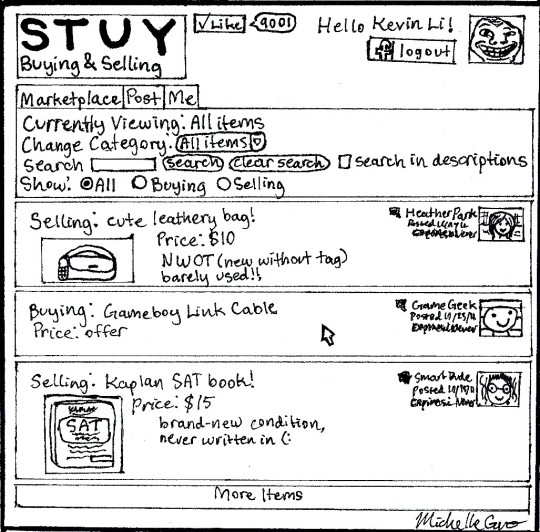 STUY
Buying & Selling
✓Like 9001
Hello Kevin Li!
logout
Marketplace Post Me
Currently Viewing: All items
Change Category: All items
Search search clear search search in descriptions
Show: All Buying Selling
Selling: cute leathery bag!
Price: $10
NWOT (new without tag)
barely used!!
Heather Park
Posted
Buying: Gameboy Link Cable
Price: offer
Game Geek
Posted
Selling: Kaplan SAT book!
Price: $15
brand-new condition,
never written in (:
KAPLAN
SAT
Smart Dude
Posted
Expires: Never
More Items
Michelle Guo